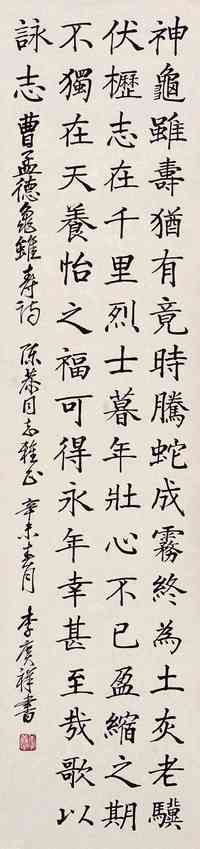 神龜雖壽猶有竟時騰蛇成霧終為土灰老驥
伏櫪志在千里烈士暮年壯心不已盈縮之期
不獨在天養怡之福可得永年幸甚至哉歌以
詠志 曹孟德龜雖壽詩 陈恭同志雅正 辛未春月 李廣祥書